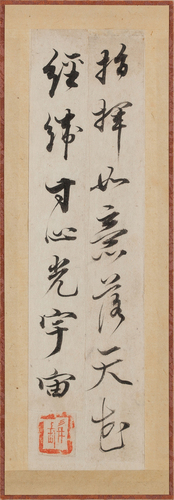 指揮如意落天花
經緯寸心光宇宙